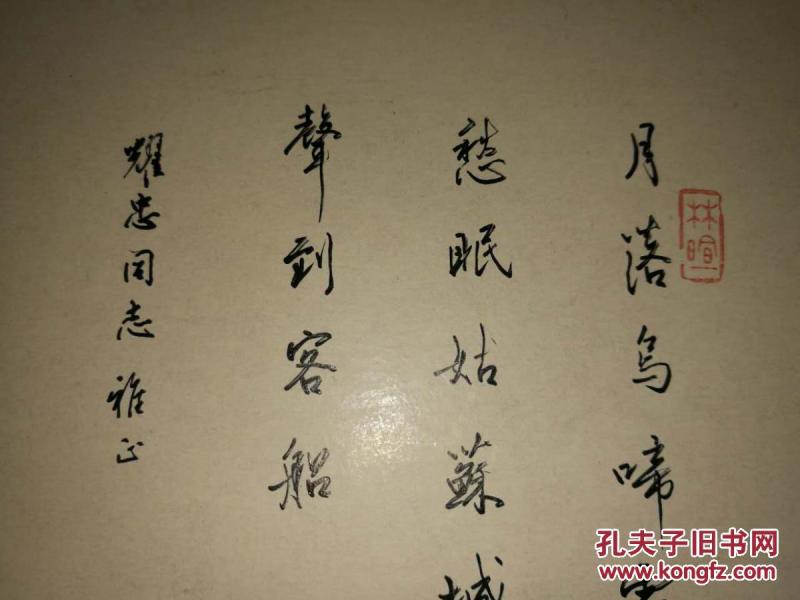 月落烏啼
愁眠姑蘇城
聲到客船
耀忠同志雅正
林暄
孔夫子旧书网
www.kongfz.com